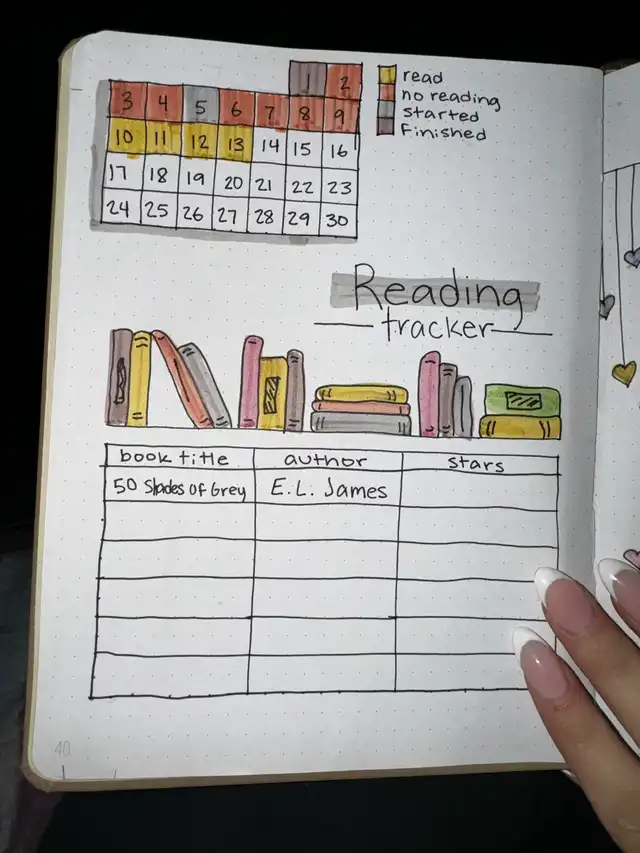 1 2
read
no reading
started
Finished
3 4 5 6 7 8 9
10 11 12 13 14 15 16
17 18 19 20 21 22 23
24 25 26 27 28 29 30
Reading
tracker
book title author stars
50 Shades of Grey E.L. James
40